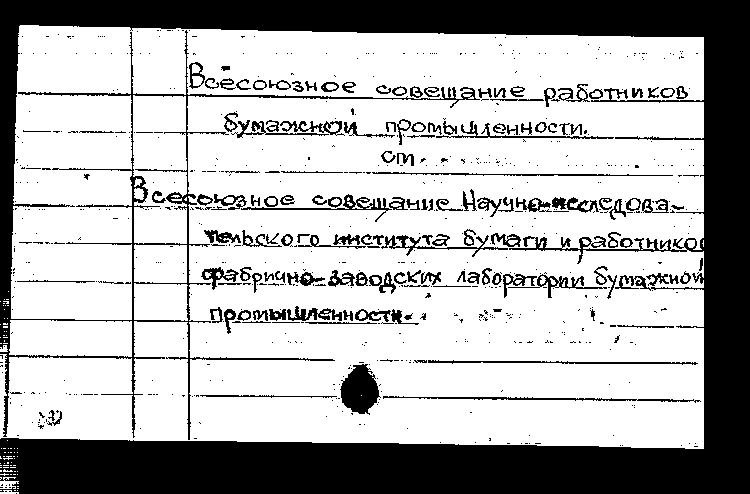 Всесоюзное совещание работников
бумажной промышленности.
см.
Всесоюзное совещание Научно-исследова-
тельского института бумаги и работников
фабрично-заводских лаборатории бумажной
промышленности.